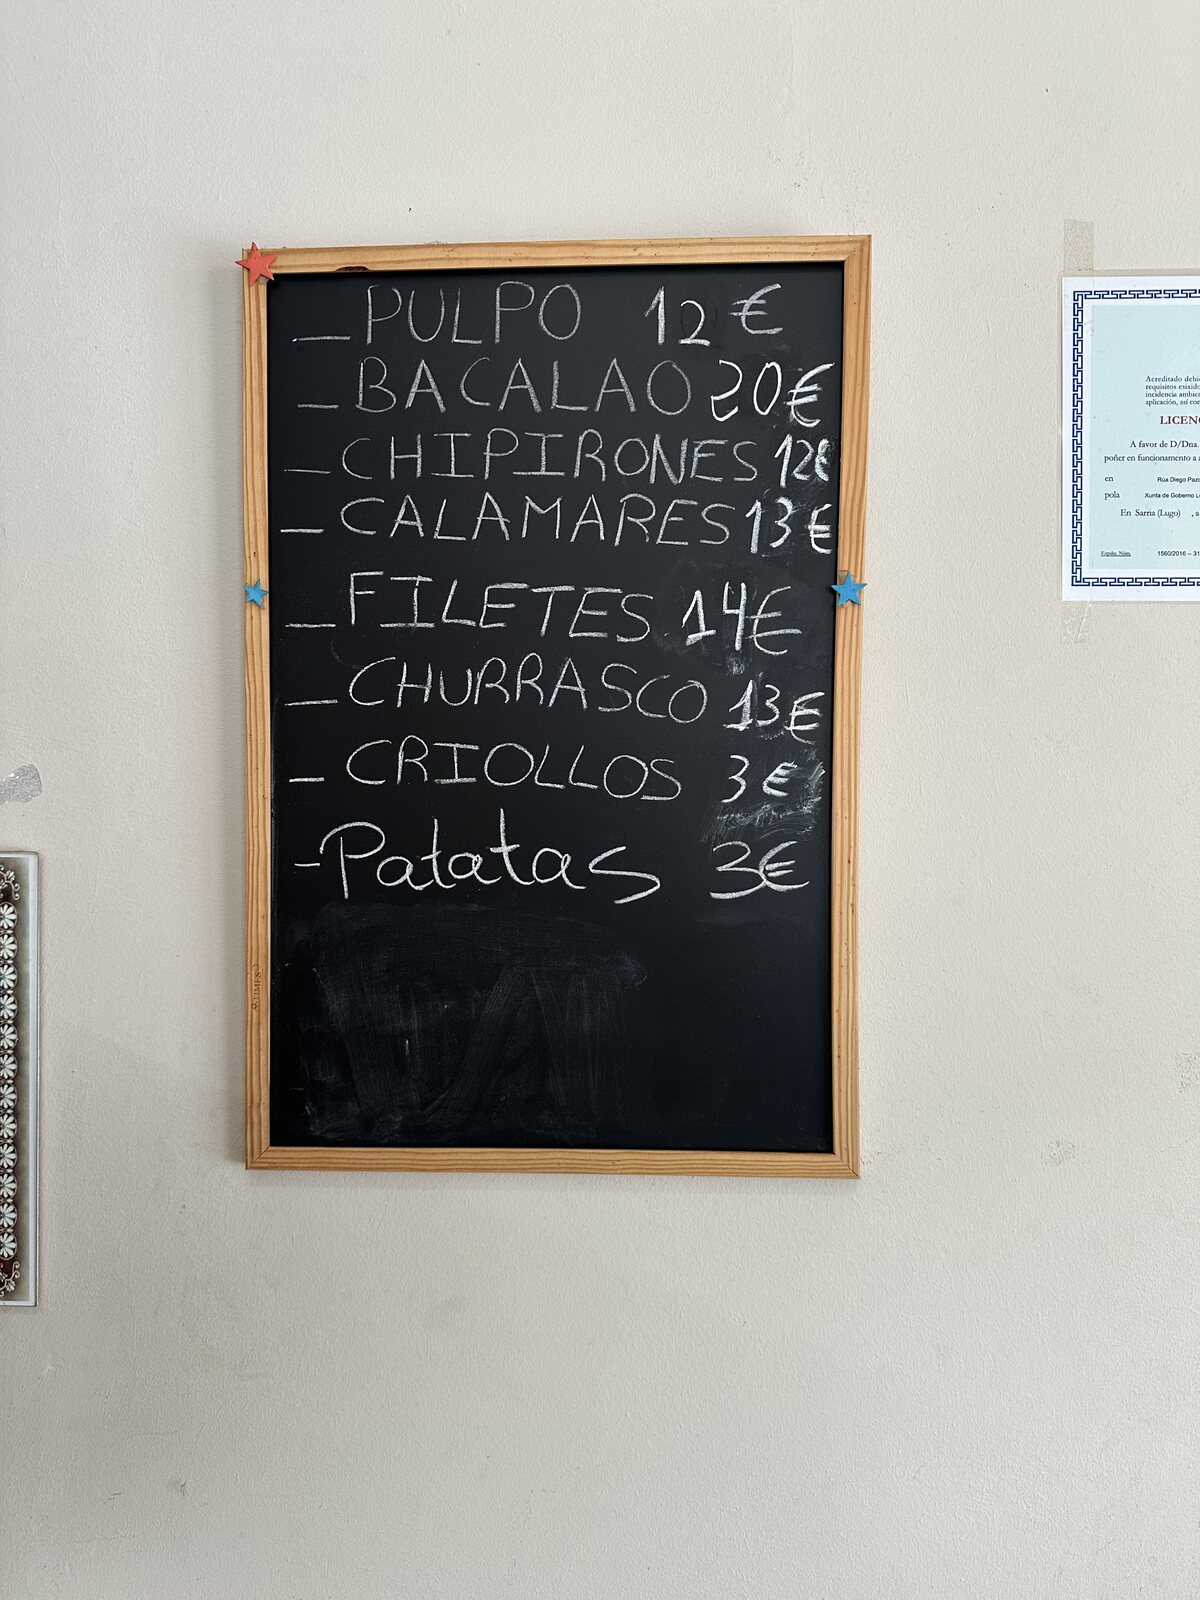 _ PULPO 12 €
_ BACALAO 20€
_ CHIPIRONES 12€
_ CALAMARES 13€
_ FILETES 14€
_ CHURRASCO 13€
_ CRIOLLOS 3€
- Patatas 3€
Acreditado debi
requisitos esixido
incidencia ambien
aplicación, así com
LICEN
A favor de D/Dna.
poñer en funcionamento a a
en Rúa Diego Pazo
pola Xunta de Goberno L
En Sarria (Lugo) , a
Expdte. Núm. 1560/2016 – 31